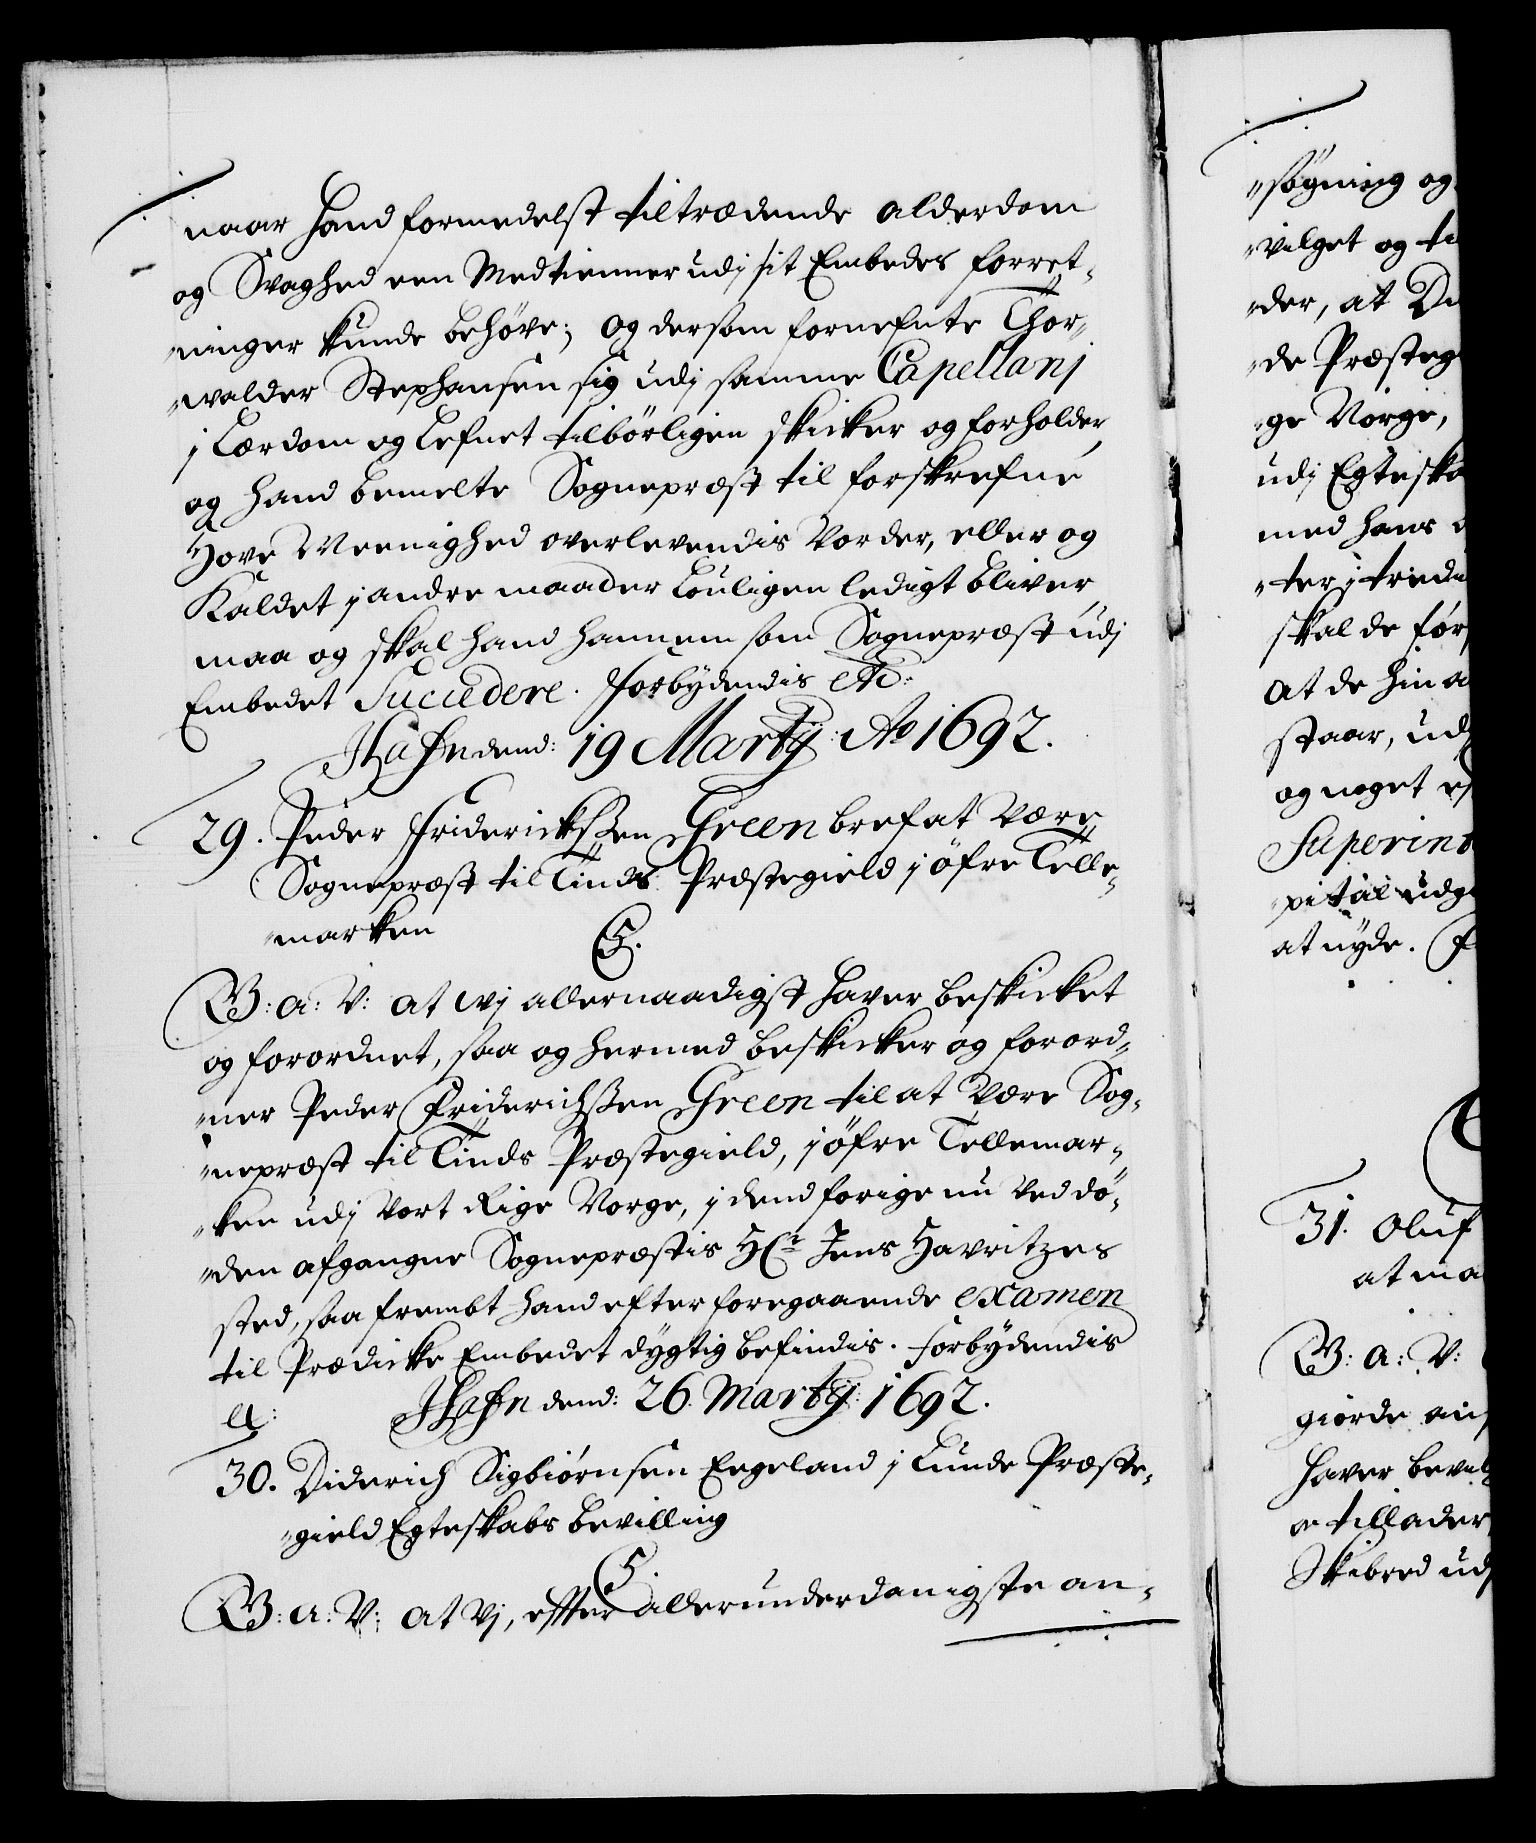 naar hand formedelst tiltrædende alderdom
og Svaghed een Medtienner udj sit Embedes forret-
ninger kunde behöve; og dersom fornefnte Thor-
walder Stephansen sig udj samme Capellanj
j Lærdom og Lefnet tilbörligen skicker og forholder,
og hand bemelte Sognepræst til forskrefne
Hove Meenighed overlevendis vorder, eller og
Kaldet j andre maader louligen ledigt bliver,
maa og skal hand hannem som Sognepræst udj
Embedet Succedere. Forbydendis etc:
Hafn dend: 19 Martij: Ao 1692.
29. Peder Friderichsen Green bref at være
Sognepræst til Tinds Præstegield j öfre Telle-
marken
C5.
G: a: V: at wj allernaadigst haver beskicket
og forordnet, saa og hermed beskicker og forord-
ner Peder Friderichssen Green til at være Sog-
nepræst til Tinds Præstegield, j öfre Tellemar-
ken udj vort Rige Norge, j dend forige nu ved dö-
den afgangne Sognepræstis Hr. Jens Havritzes
sted, saa frembt hand efter foregaaende examen
til Prædicke Embedet dygtig befindis. Forbydendis
etc: Hafn dend: 26. Martij: 1692.
30. Diderich Sigbiörnsen Eegeland j Lunde Præste-
gield Egteskabs bevilling
C5.
G: a: V: at Vj, effter allerunderdanigste an-
sögning og
vilget og ti
der, at Di
de Præsteg
ge Norge,
udj Egteska
med hans
ter j tredi
skal de før
at de hin a
staar, ud
og noget
Superint
pital udg
at nyde. F
31. Oluf
at ma
G: a: V:
giørde an
haver bevilg
tillader
Skibred udj